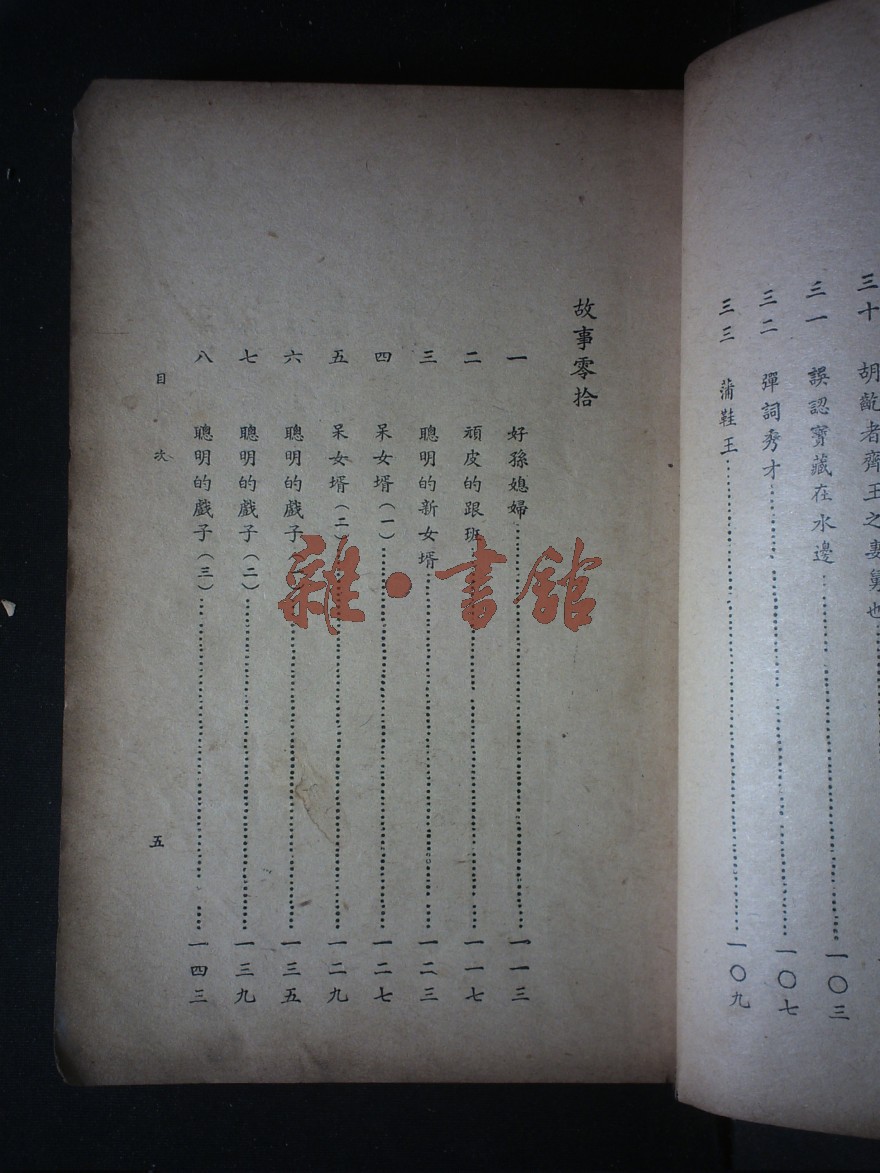 三十 胡齕者齊王之妻舅也
三一 誤認寶藏在水邊 一〇三
三二 彈詞秀才 一〇七
三三 蒲鞋王 一〇九
故事零拾
一 好孫媳婦 一一三
二 頑皮的跟班 一一七
三 聰明的新女壻 一二三
四 呆女壻(一) 一二七
五 呆女壻(二) 一二九
六 聰明的戲子 一三五
七 聰明的戲子(二) 一三九
八 聰明的戲子(三) 一四三
目次
五
雜·書館